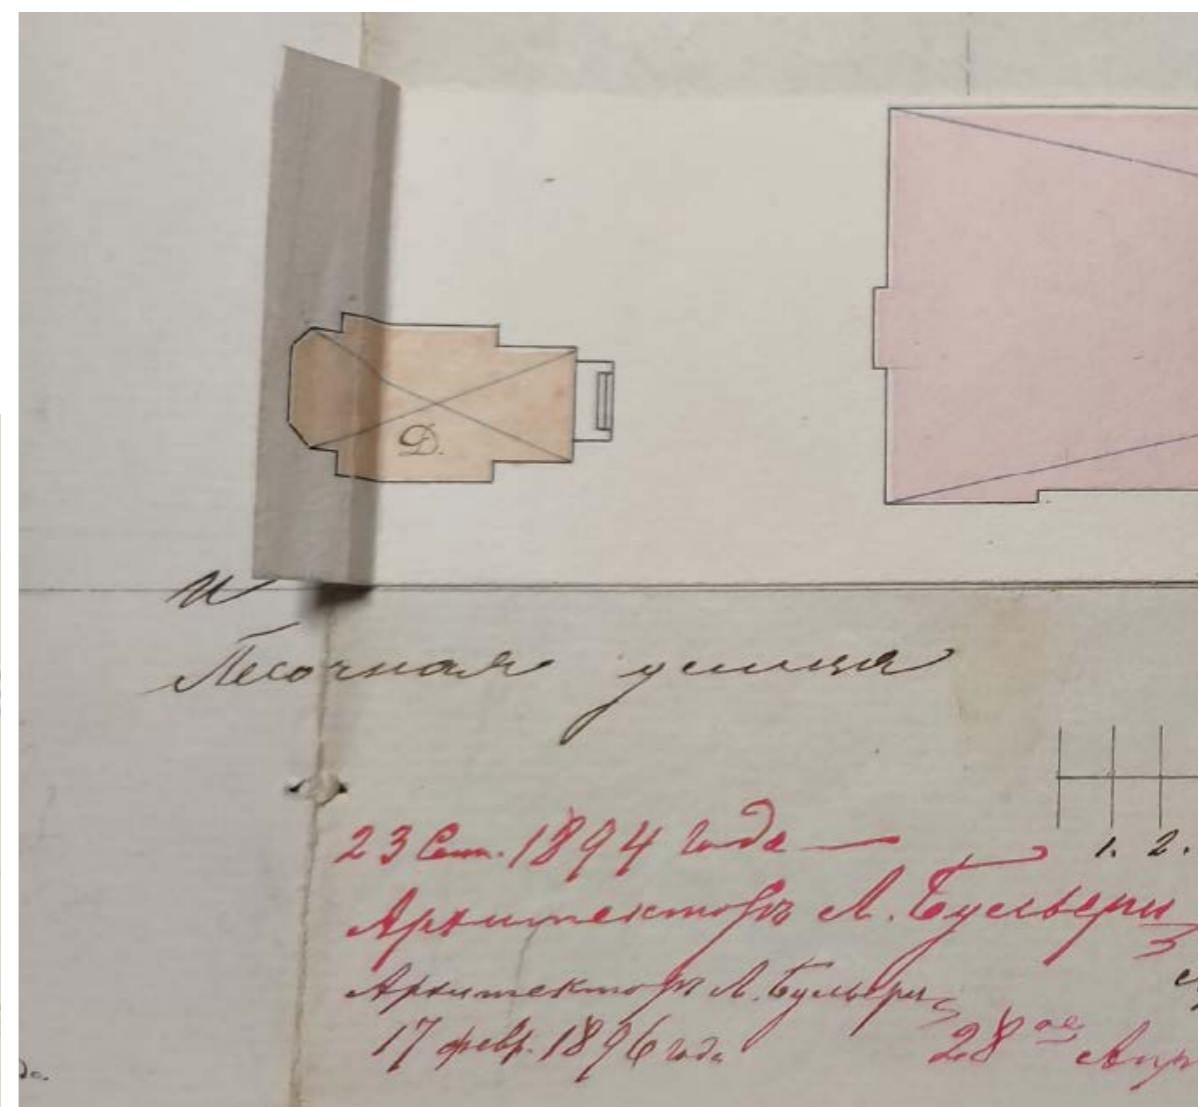 Д.
и
Песочная улица
1. 2.
23 Сент. 1894 года
Архитекторъ Л. Бульери
Архитекторъ Л. Бульери
17 февр. 1896 года
28ое Апр